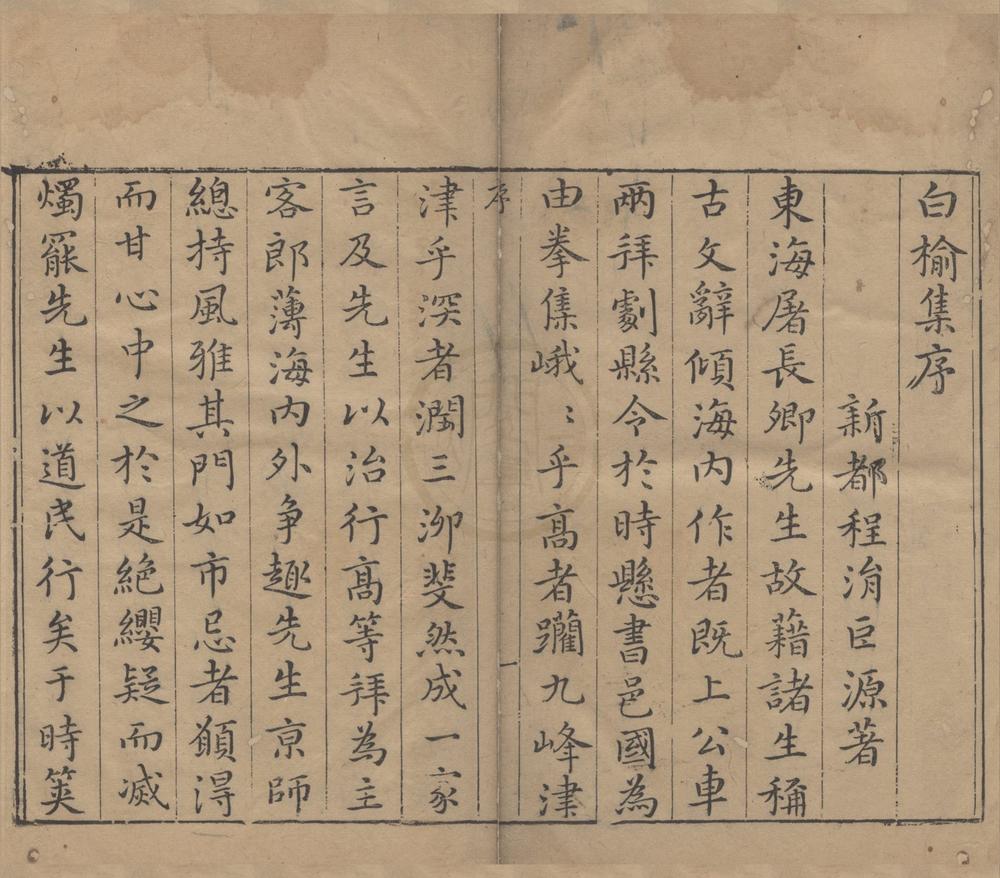 白榆集序
新都程涓巨源著
東海屠長卿先生故藉諸生稱
古文辭傾海内作者既上公車
兩拜劇縣令於時懸書邑國為
由拳集峨〻乎髙者躪九峰津
序
一
津乎深者潤三泖斐然成一家
言及先生以治行髙等拜為主
客郎薄海内外争趣先生京師
總持風雅其門如市忌者顧得
而甘心中之於是絶纓疑而滅
燭罷先生以道民行矣于時筴